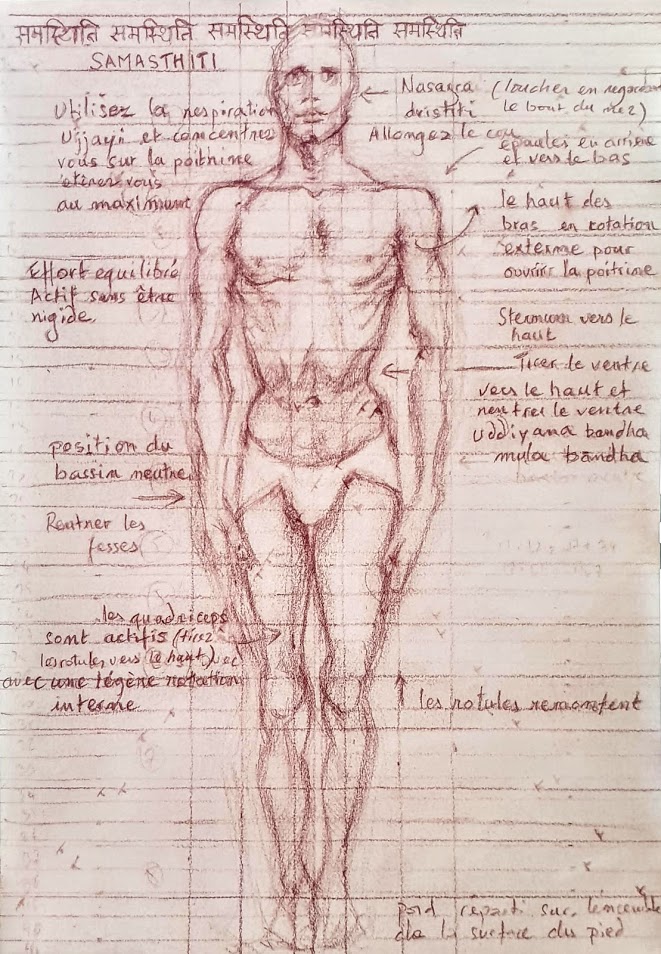 समस्थिति समस्थिति समस्थिति समस्थिति समस्थिति
SAMASTHITI
Utilisez la respiration
Ujjayi et concentrez
vous sur la poitrine
etirez vous
au maximum
Nasagra (loucher en regardant
dristiti le bout du nez)
Allongez le cou
épaules en arrière
et vers le bas
le haut des
bras en rotation
externe pour
ouvrir la poitrine
Effort equilibré
Actif sans être
rigide
Sternum vers le
haut
Tirer le ventre
vers le haut et
rentrer le ventre
Uddiyana bandha
mula bandha
position du
bassin neutre
Rentrer les
fesses
les quadriceps
sont actifs (tirez
les rotules vers le haut)
avec une légère rotation
interne
les rotules remontent
poid réparti sur l'ensemble
de la surface du pied